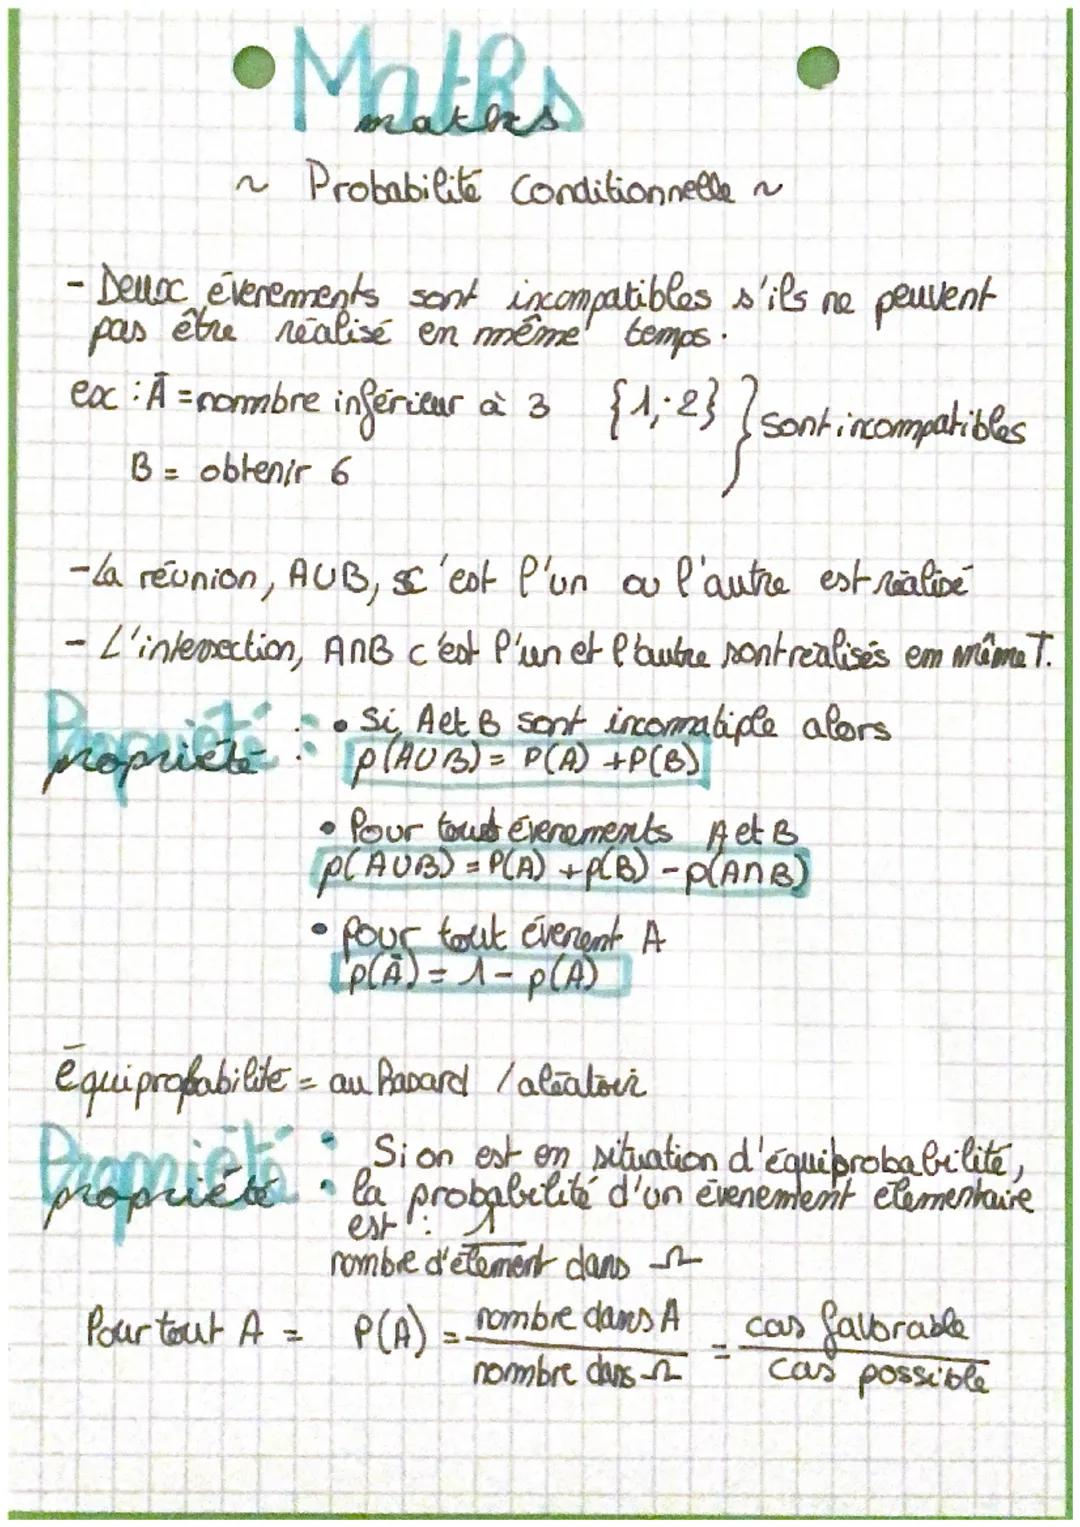 Maths
maths
~ Probabilité Conditionnelle ~
- Deux évenements sont incompatibles s'ils ne peuvent
pas être réalisé en même temps.
ex : Ā = nombre inférieur à 3 {1; 2} } sont incompatibles
B = obtenir 6
- La réunion, A∪B, c'est l'un ou l'autre est réalisé
- L'intersection, A∩B c'est l'un et l'autre sont réalisés em même T.
Propriété :
propriété : • Si, A et B sont incomatiple alors
p(A∪B) = P(A) + P(B)
• Pour tout évenements A et B
p(A∪B) = P(A) + p(B) - p(A∩B)
• pour tout évenent A
p(Ā) = 1 - p(A)
équiprobabilité = au hasard / aléatoir
Propriété :
propriété : Si on est en situation d'équiprobabilité,
la probabilité d'un évenement élementaire
est : 1
nombre d'élement dans Ω
Pour tout A = P(A) = nombre dans A / nombre dans Ω = cas favorable / cas possible